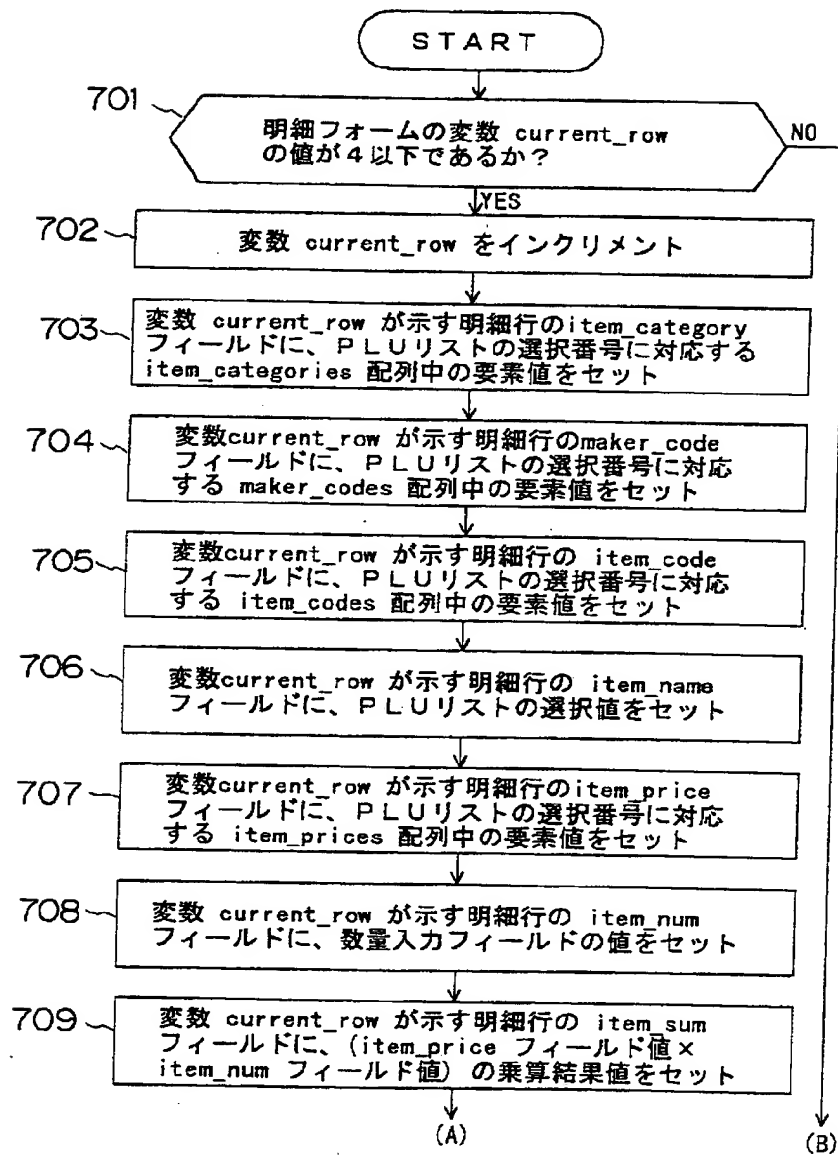 START
701
明細フォームの変数 current_row
の値が4以下であるか?
NO
YES
702
変数 current_row をインクリメント
703
変数 current_row が示す明細行のitem_category
フィールドに、PLUリストの選択番号に対応する
item_categories 配列中の要素値をセット
704
変数current_row が示す明細行のmaker_code
フィールドに、PLUリストの選択番号に対応
する maker_codes 配列中の要素値をセット
705
変数current_row が示す明細行の item_code
フィールドに、PLUリストの選択番号に対応
する item_codes 配列中の要素値をセット
706
変数current_row が示す明細行の item_name
フィールドに、PLUリストの選択値をセット
707
変数current_row が示す明細行のitem_price
フィールドに、PLUリストの選択番号に対応
する item_prices 配列中の要素値をセット
708
変数 current_row が示す明細行の item_num
フィールドに、数量入力フィールドの値をセット
709
変数 current_row が示す明細行の item_sum
フィールドに、(item_price フィールド値×
item_num フィールド値) の乗算結果値をセット
(A)
(B)